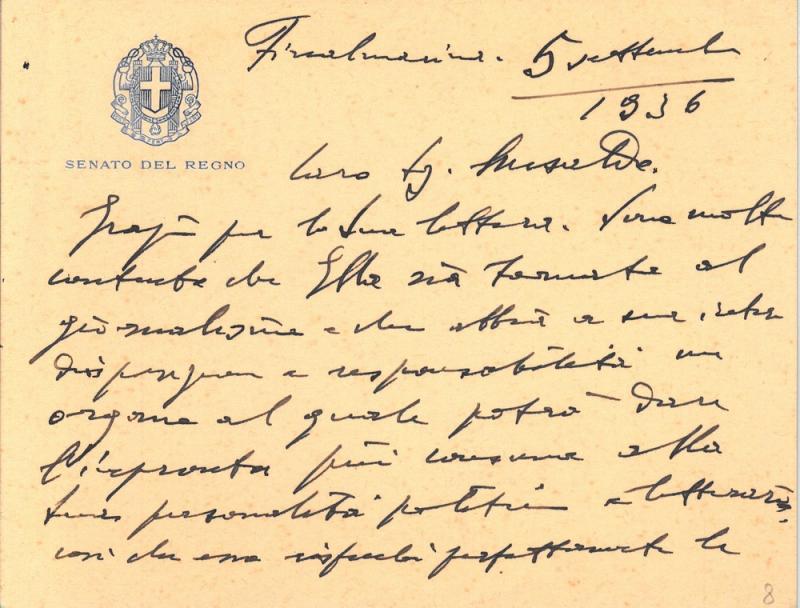 Finalmarina. 5 settembre
1936
SENATO DEL REGNO
Caro Sig.
Grazie per la Sua lettera. Sono molto
contento che Ella sia tornato al
giornalismo e che abbia a sua intera
disposizione e responsabilità un
organo al quale potrà dare
l'impronta più consona alla
Sua personalità politica e letteraria,
così che esso rispecchi perfettamente le
8